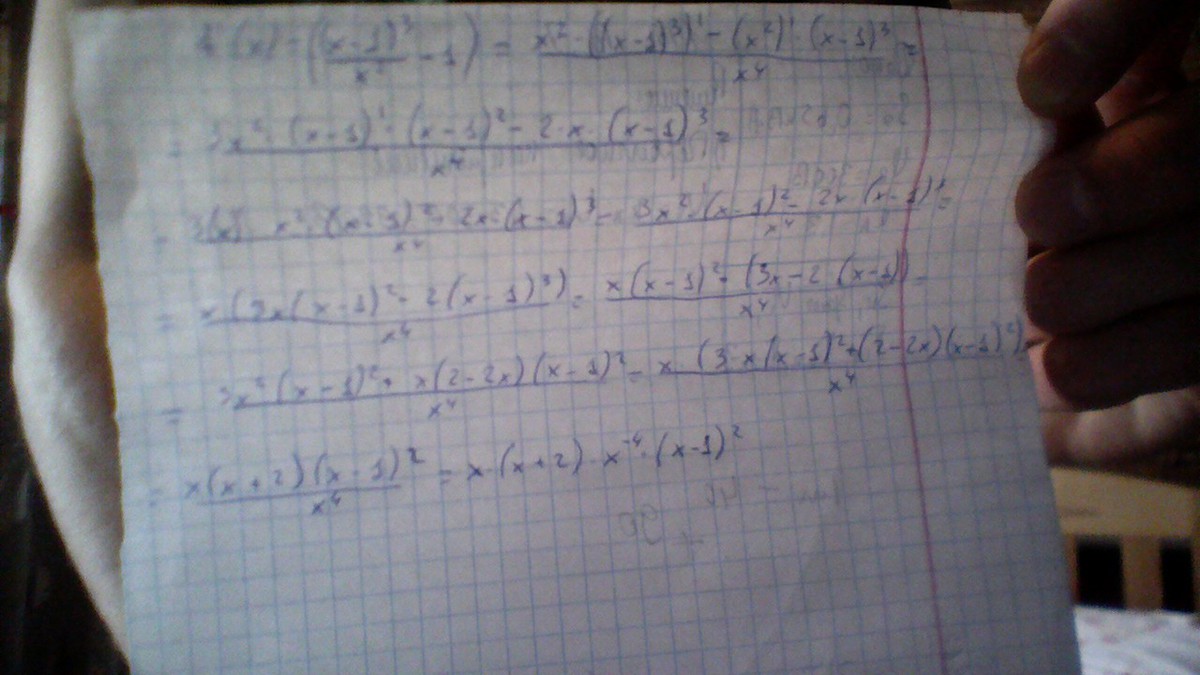 (x) = ((x-1)³/x² - 1) = (x² · ((x-1)³)' - (x²)' · (x-1)³)/x⁴ =
= (3x² · (x-1)' · (x-1)² - 2·x · (x-1)³)/x⁴ =
= (3(x)' x² · (x-1)² - 2x · (x-1)³)/x⁴ = (3x² · (x-1)² - 2x · (x-1)³)/x⁴ =
= x(3x(x-1)² - 2(x-1)³)/x⁴ = x(x-1)² · (3x-2(x-1))/x⁴ =
= (3x²(x-1)² + x(2-2x)(x-1)²)/x⁴ = x · (3·x(x-1)² + (2-2x)(x-1)²)/x⁴ =
= x(x+2)(x-1)²/x⁴ = x·(x+2)·x⁻⁴·(x-1)²